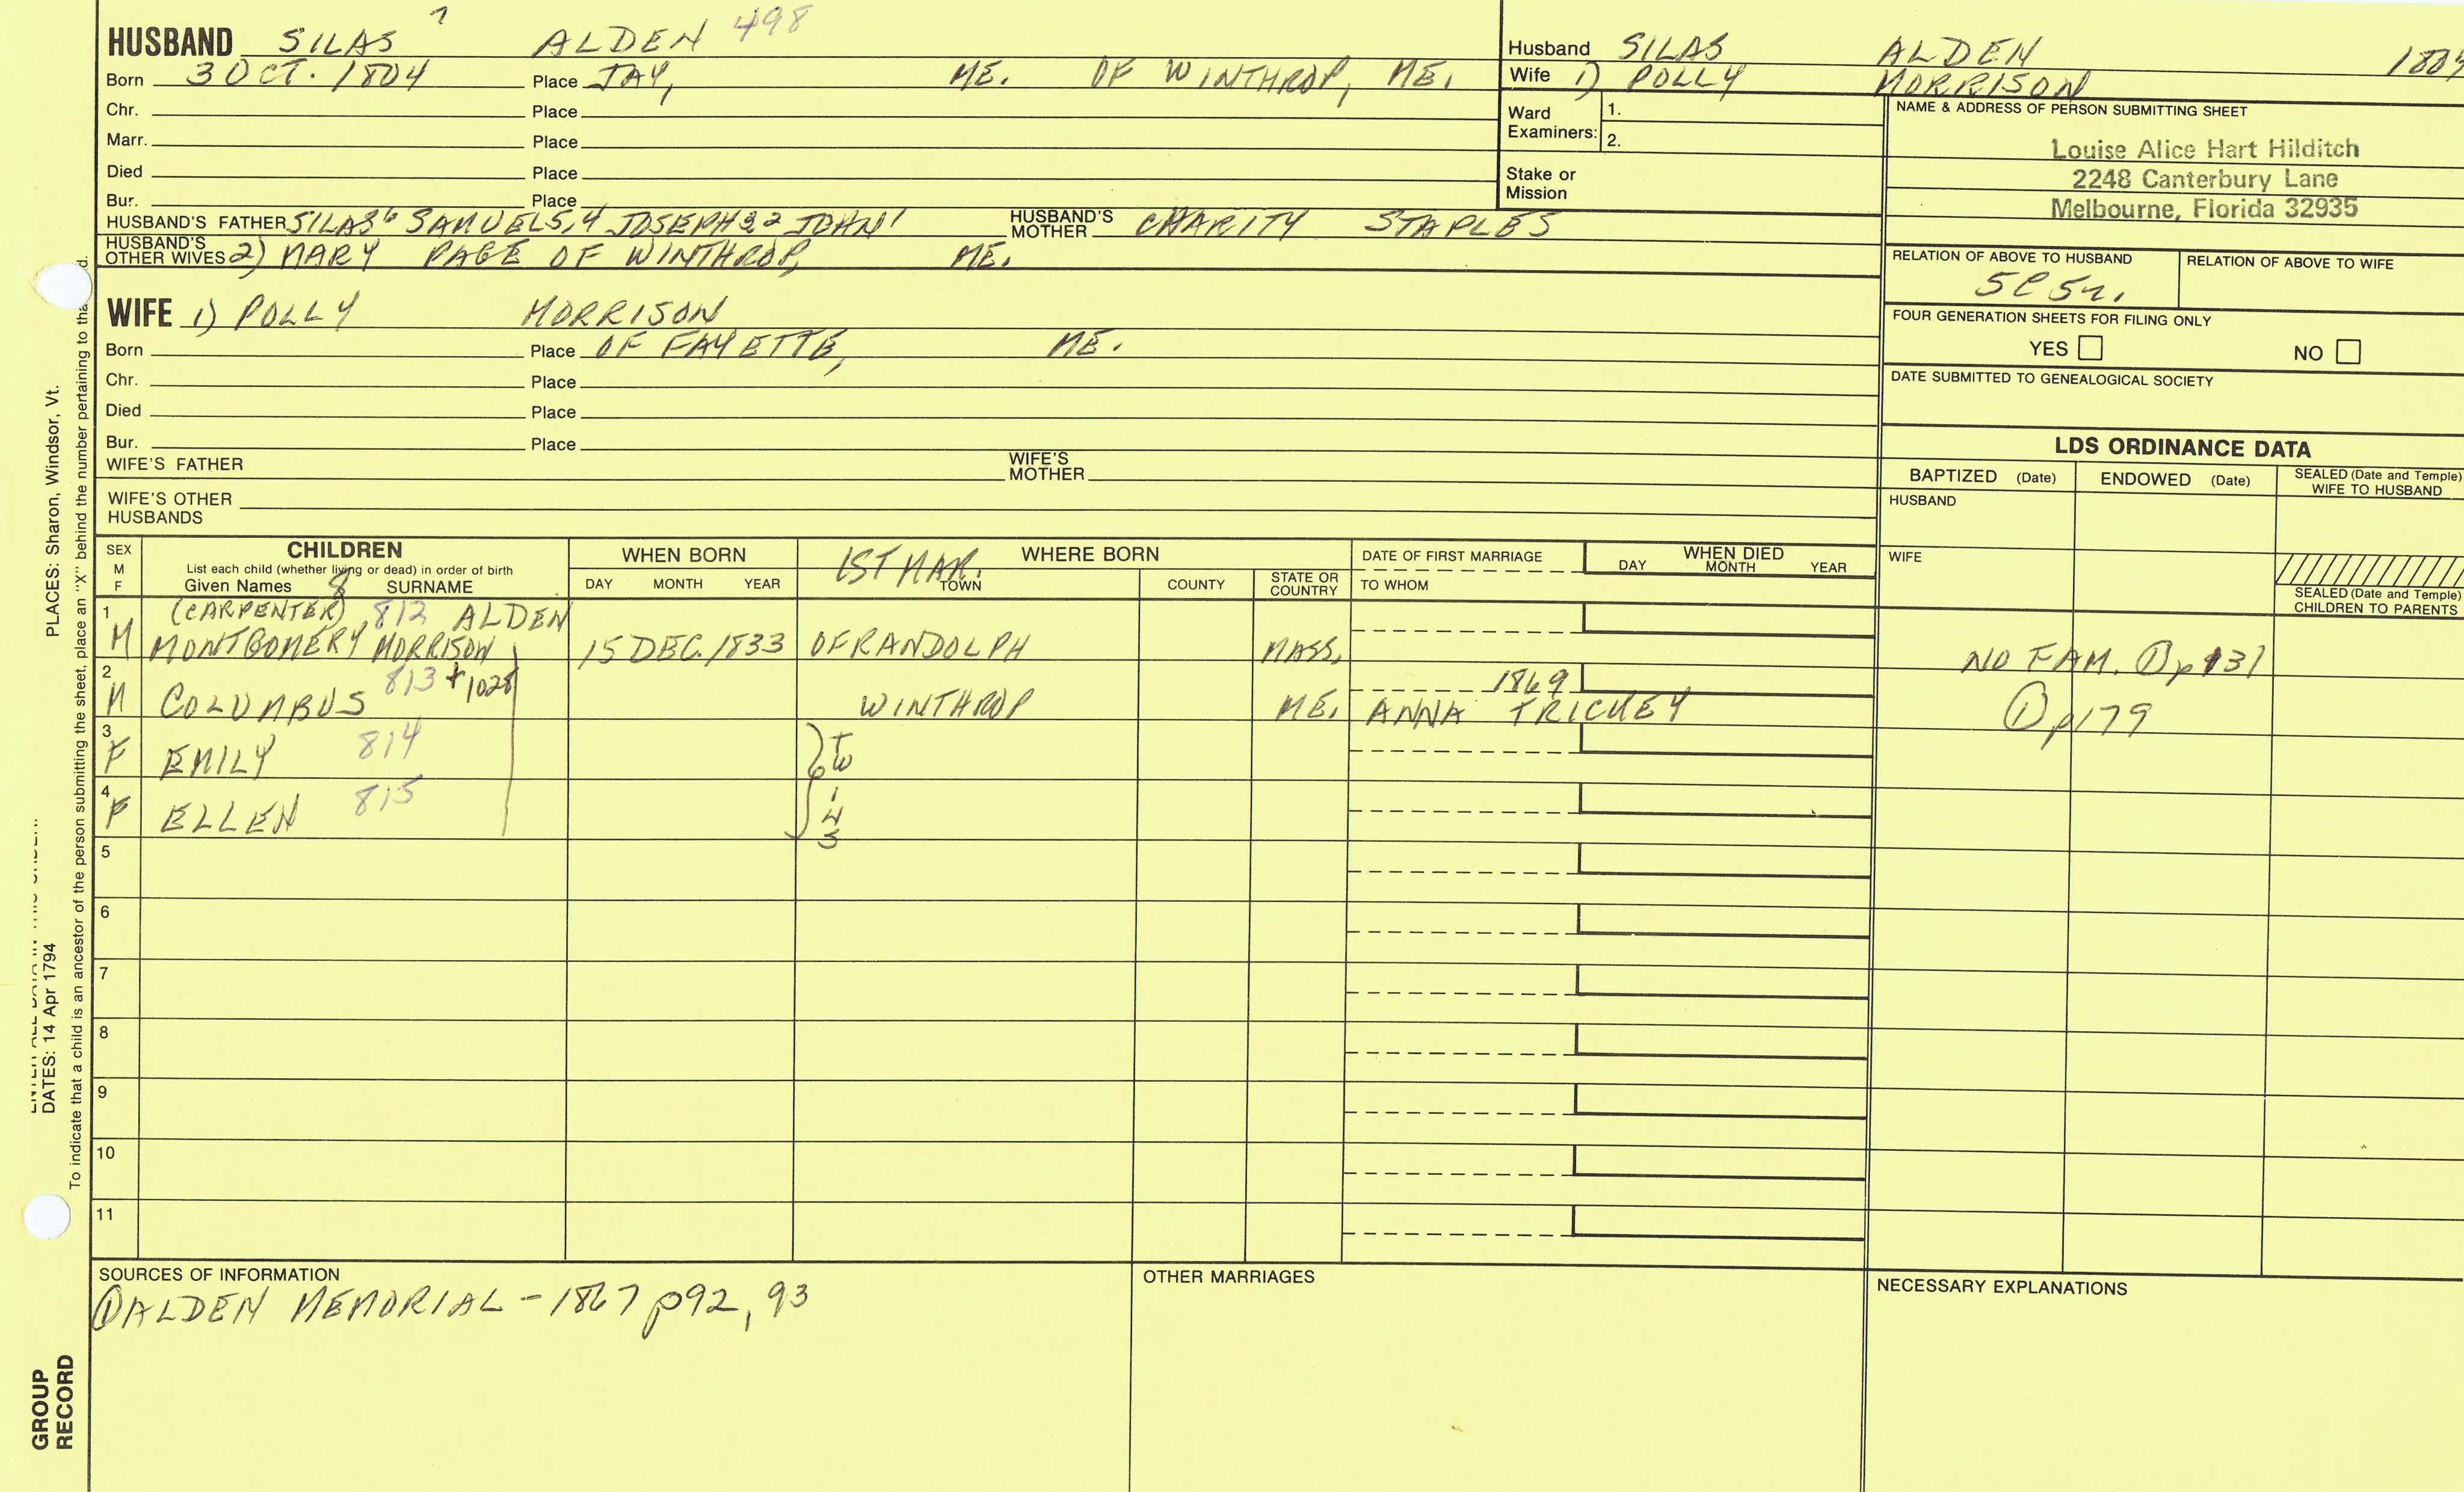 HUSBAND SILAS 7 ALDEN 498
Born 3 OCT. 1804 Place JAY, ME. OF WINTHROP, ME.
Chr. Place
Marr. Place
Died Place
Bur. Place
HUSBAND'S FATHER SILAS6 SAMUEL5,4 JOSEPH3,2 JOHN1 HUSBAND'S MOTHER CHARITY STAPLES
HUSBAND'S OTHER WIVES 2) MARY PAGE OF WINTHROP, ME.
WIFE 1) POLLY MORRISON
Born Place OF FAYETTE, ME.
Chr. Place
Died Place
Bur. Place
WIFE'S FATHER WIFE'S MOTHER
WIFE'S OTHER HUSBANDS
Husband SILAS ALDEN 1804
Wife 1) POLLY MORRISON
Ward Examiners: 1.
2.
Stake or Mission
NAME & ADDRESS OF PERSON SUBMITTING SHEET
Louise Alice Hart Hilditch
2248 Canterbury Lane
Melbourne, Florida 32935
RELATION OF ABOVE TO HUSBAND RELATION OF ABOVE TO WIFE
5C5r.
FOUR GENERATION SHEETS FOR FILING ONLY
YES NO
DATE SUBMITTED TO GENEALOGICAL SOCIETY
LDS ORDINANCE DATA
BAPTIZED (Date) ENDOWED (Date) SEALED (Date and Temple) WIFE TO HUSBAND
HUSBAND
WIFE
SEALED (Date and Temple) CHILDREN TO PARENTS
SEX M F
CHILDREN WHEN BORN 1ST MAR. WHERE BORN DATE OF FIRST MARRIAGE WHEN DIED
List each child (whether living or dead) in order of birth
Given Names 8 SURNAME DAY MONTH YEAR TOWN COUNTY STATE OR COUNTRY TO WHOM DAY MONTH YEAR
1 (CARPENTER) 812 ALDEN
M MONTGOMERY MORRISON 15 DEC. 1833 OF RANDOLPH MASS. NO FAM. ① p131
2 813 +1028 1869
M COLUMBUS WINTHROP ME. ANNA TRICKEY ① p179
3 F EMILY 814 TW
4 F ELLEN 815 INS
5
6
7
8
9
10
11
SOURCES OF INFORMATION
① ALDEN MEMORIAL - 1867 p92, 93
OTHER MARRIAGES
NECESSARY EXPLANATIONS
PLACES: Sharon, Windsor, Vt.
DATES: 14 Apr 1794
To indicate that a child is an ancestor of the person submitting the sheet, place an "X" behind the number pertaining to tha d.
GROUP
RECORD